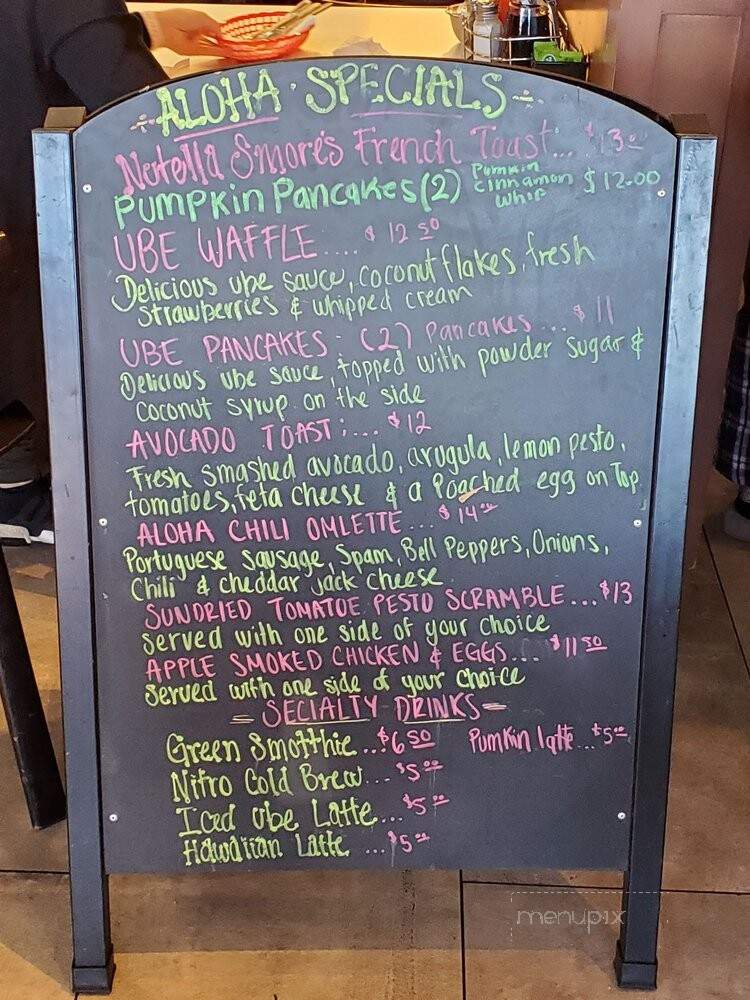 ALOHA SPECIALS
Nutella Smores French Toast... $13.00
Pumpkin Pancakes (2) Pumkin cinnamon whip $12.00
UBE WAFFLE.... $12 50
Delicious ube sauce, coconut flakes, fresh
strawberries & whipped cream
UBE PANCAKES - (2) Pancakes... $11
Delicious ube sauce, topped with powder sugar &
coconut syrup on the side
AVOCADO TOAST:... $12
Fresh smashed avocado, arugula, lemon pesto,
tomatoes, feta cheese & a Poached egg on Top.
ALOHA CHILI OMLETTE... $14.00
Portuguese Sausage, Spam, Bell Peppers, Onions,
Chili & cheddar jack cheese
SUNDRIED TOMATOE PESTO SCRAMBLE...$13
Served with one side of your choice
APPLE SMOKED CHICKEN & EGGS... $11 50
Served with one side of your choice
SECIALTY DRINKS
Green Smotthie...$6 50 Pumkin latte...$5.00
Nitro Cold Brew...$5.00
Iced Ube Latte...$5.00
Hawaiian Latte...$5.00
menupix